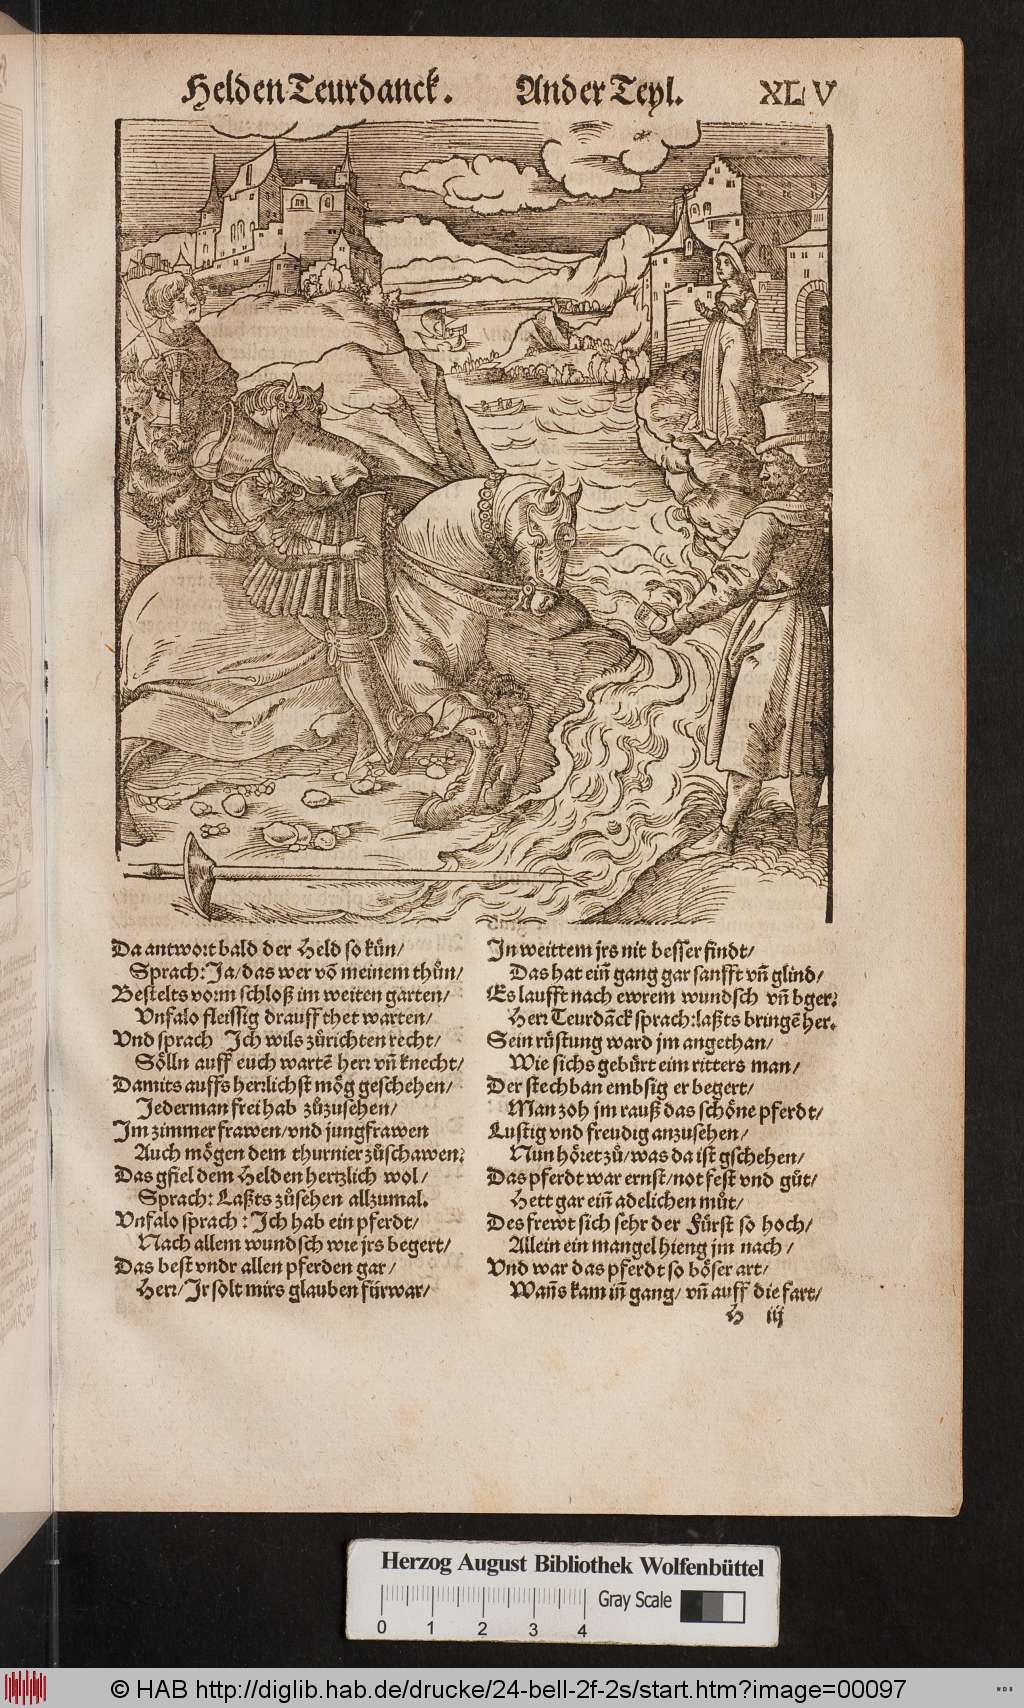 Helden Teurdanck. Ander Teyl. XLV
Da antwort bald der Held so kün/
Sprach: Ja/ das wer vō meinem thůn/
Bestelts vorm schloß im weiten garten/
Vnfalo fleissig drauff thet warten/
Vnd sprach Ich wils zůrichten recht/
Sölln auff euch wartē herr vñ knecht/
Damits auffs herrlichst mög geschehen/
Jederman frei hab zůzusehen/
Im zimmer frawen/ vnd jungfrawen
Auch mögen dem thurnier zůschawen.
Das gfiel dem Helden hertzlich wol/
Sprach: Laßts zůsehen allzumal.
Vnfalo sprach: Ich hab ein pferdt/
Nach allem wundsch wie jrs begert/
Das best vndr allen pferden gar/
Herr/ Ir solt mirs glauben fürwar/
In weittem jrs nit besser findt/
Das hat eiñ gang gar sanfft vñ glind/
Es laufft nach ewrem wundsch vñ bger.
Herr Teurdāck sprach: laßts bringē her.
Sein rüstung ward jm angethan/
Wie sichs gebürt eim ritters man/
Der stechban embsig er begert/
Man zoh jm rauß das schöne pferdt/
Lustig vnd freudig anzusehen/
Nun höret zů/ was da ist gschehen/
Das pferdt war ernst/ not fest vnd gůt/
Hett gar eiñ adelichen můt/
Des frewt sich sehr der Fürst so hoch/
Allein ein mangel hieng jm nach/
Vnd war das pferdt so böser art/
Wañs kam iñ gang/ vñ auff die fart/
H iij
Herzog August Bibliothek Wolfenbüttel
Gray Scale
0 1 2 3 4
© HAB http://diglib.hab.de/drucke/24-bell-2f-2s/start.htm?image=00097